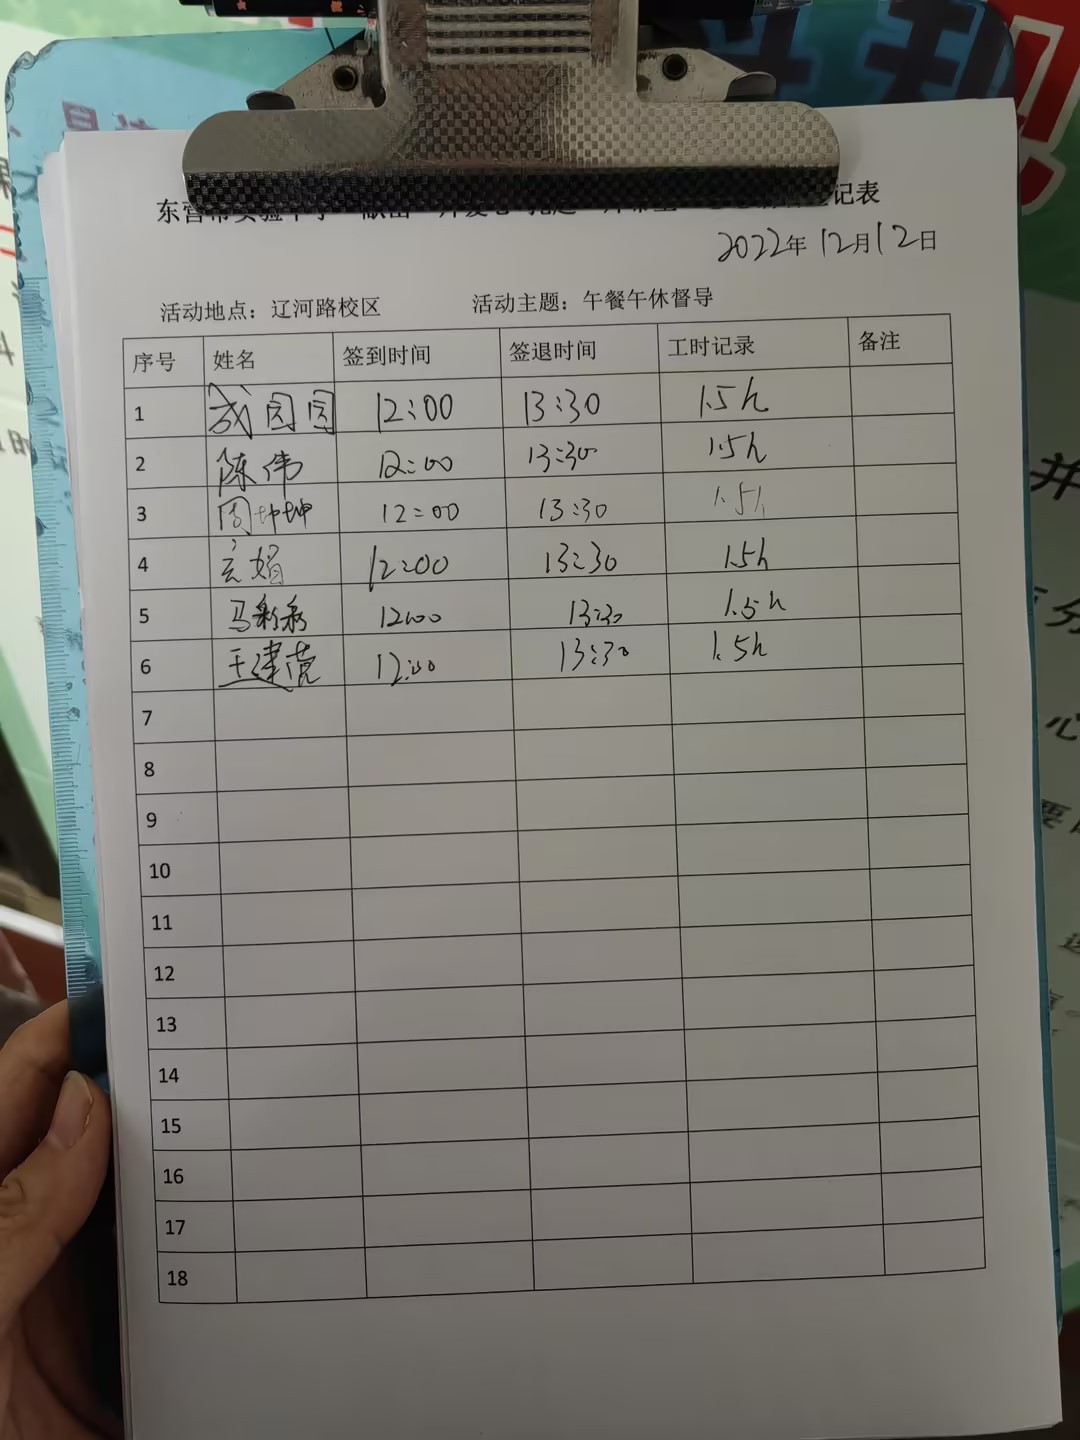 记表
2022年12月12日
活动地点：辽河路校区 活动主题：午餐午休督导
序号 姓名 签到时间 签退时间 工时记录 备注
1 成园园 12:00 13:30 1.5h
2 陈伟 12:00 13:30 1.5h
3 周坤坤 12:00 13:30 1.5h
4 12:00 13:30 1.5h
5 马彩彩 12:00 13:30 1.5h
6 王建 12:00 13:30 1.5h
7
8
9
10
11
12
13
14
15
16
17
18